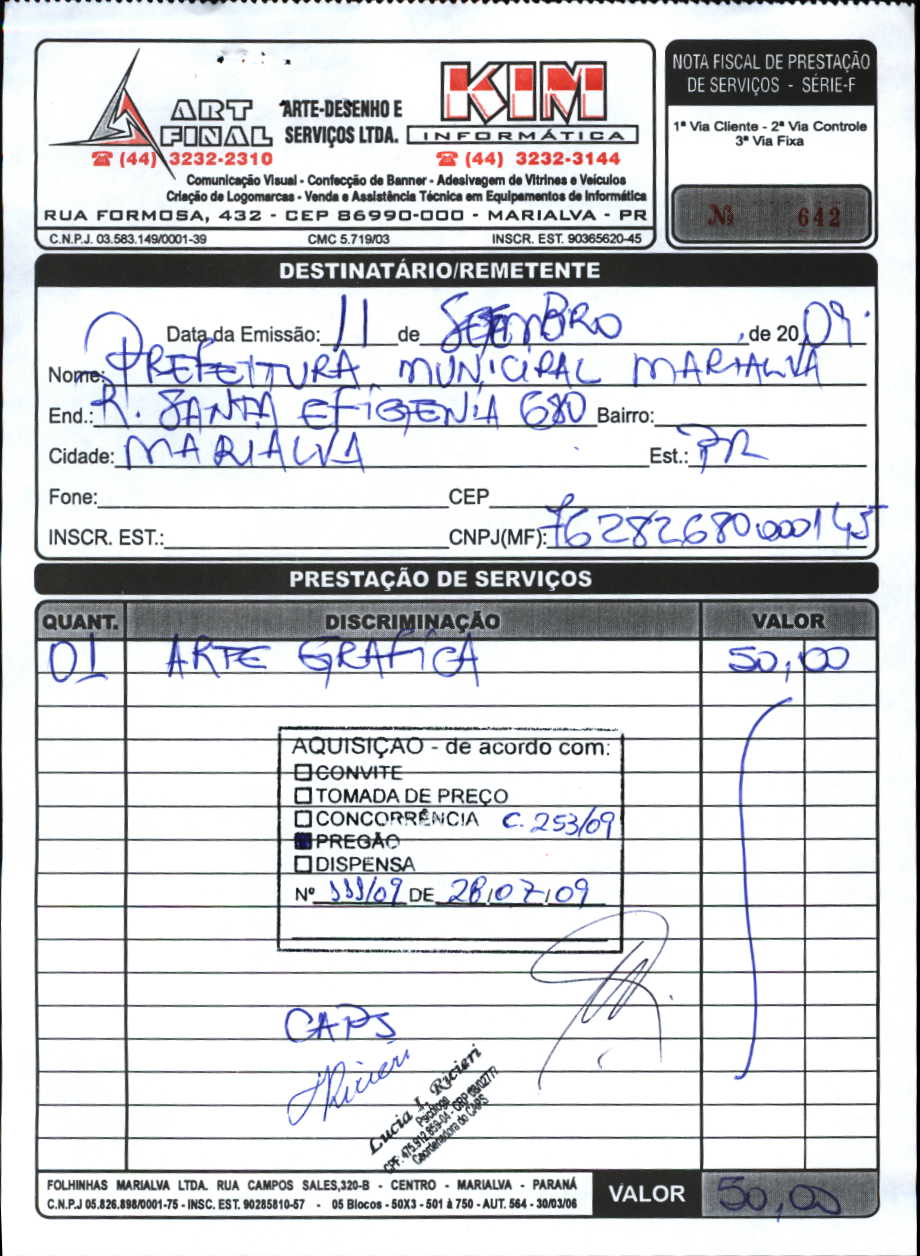 ART FINAL
ARTE-DESENHO E SERVIÇOS LTDA.
KIM INFORMÁTICA
(44) 3232-2310
(44) 3232-3144
Comunicação Visual - Confecção de Banner - Adesivagem de Vitrines e Veículos
Criação de Logomarcas - Venda e Assistência Técnica em Equipamentos de Informática
RUA FORMOSA, 432 - CEP 86990-000 - MARIALVA - PR
C.N.P.J. 03.583.149/0001-39 CMC 5.719/03 INSCR. EST. 90365620-45
NOTA FISCAL DE PRESTAÇÃO
DE SERVIÇOS - SÉRIE-F
1ª Via Cliente - 2ª Via Controle
3ª Via Fixa
Nº 642
DESTINATÁRIO/REMETENTE
Data da Emissão: 11 de SETEMBRO, de 2009.
Nome: PREFEITURA MUNICIPAL MARIALVA
End.: R. SANTA EFIGENIA 680 Bairro:
Cidade: MARIALVA Est.: PR
Fone: CEP
INSCR. EST.: CNPJ(MF): 76282680000145
PRESTAÇÃO DE SERVIÇOS
QUANT. DISCRIMINAÇÃO VALOR
01 ARTE GRAFICA 50,00
AQUISIÇÃO - de acordo com:
CONVITE
TOMADA DE PREÇO
CONCORRÊNCIA C. 253/09
PREGÃO
DISPENSA
Nº 111/09 DE 28/07/09
CAPS
Lucia I. Ricieri
Psicóloga
Coordenadora do CAPS
FOLHINHAS MARIALVA LTDA. RUA CAMPOS SALES,320-B - CENTRO - MARIALVA - PARANÁ
C.N.P.J 05.826.898/0001-75 - INSC. EST. 90285810-57 - 05 Blocos - 50X3 - 501 à 750 - AUT. 564 - 30/03/06
VALOR 50,00